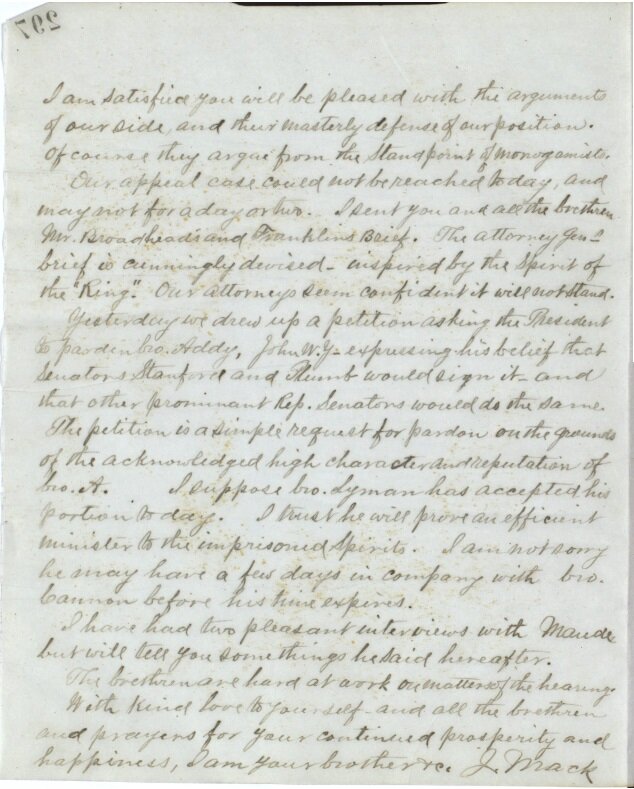 297
I am satisfied you will be pleased with the arguments
of our side, and their masterly defense of our position.
Of course they argue from the Standpoint of monogamists.
Our appeal case could not be reached today, and
may not for a day or two. I sent you and all the brethren
Mr. Broadheads and Franklins Brief. The attorney Genl
brief is cunningly devised - inspired by the Spirit of
the "Ring". Our attorneys seem confident it will not stand.
Yesterday we drew up a petition asking the President
to pardon bro. Addy, John W. Y- expressing his belief that
Senators Stanford and Plumb would sign it - and
that other prominant Rep. Senators would do the same.
The petition is a simple request for pardon on the grounds
of the acknowledged high character and reputation of
bro. A. I suppose bro. Lyman has accepted his
portion today. I trust he will prove an efficient
minister to the imprisoned Spirits. I am not sorry
he may have a few days in company with bro.
Cannon before his time expires.
I have had two pleasant interviews with Maude
but will tell you some things he said hereafter.
The brethren are hard at work on matters of the hearing.
With Kind love to yourself and all the brethren
and prayers for your continued prosperity and
happiness, I am your brother &c. J. Mack